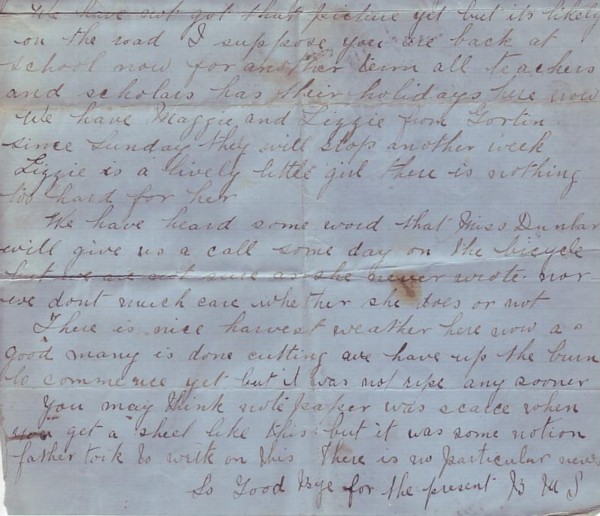 We have not got that picture yet but its likely
on the road I suppose you are back at
school now for another term all teachers
and scholars has their holidays here now
We have Maggie and Lizzie from Gortin
since Sunday they will stop another week
Lizzie is a lively little girl there is nothing
too hard for her
We have heard some word that Miss Dunbar
will give us a call some day on the bicycle
but we are not sure as she never wrote nor
we dont much care whether she does or not
There is nice harvest weather here now a
good many is done cutting we have up the burn
to commence yet but it was not ripe any sooner
You may think note paper was scarce when
you get a sheet like this but it was some notion
father took to write on this There is no particular news
So Good Bye for the present B M S